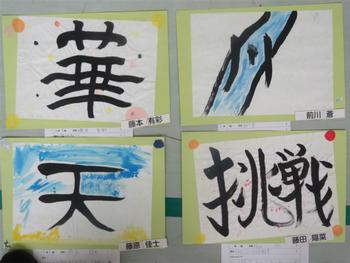 華
藤本 有彩
川
前川 蒼
天
藤原 佳士
挑戦
藤田 陽菜